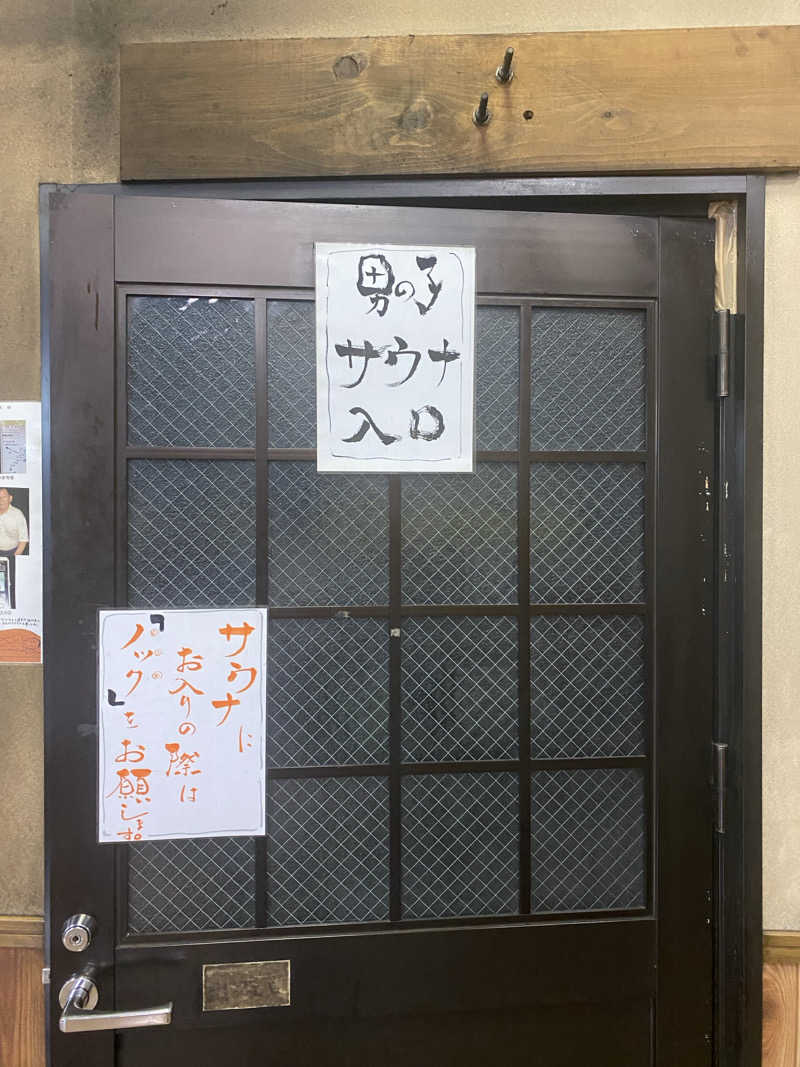 男の子
サウナ
入口
サウナに
お入りの際は
「ノック」を お願いします。